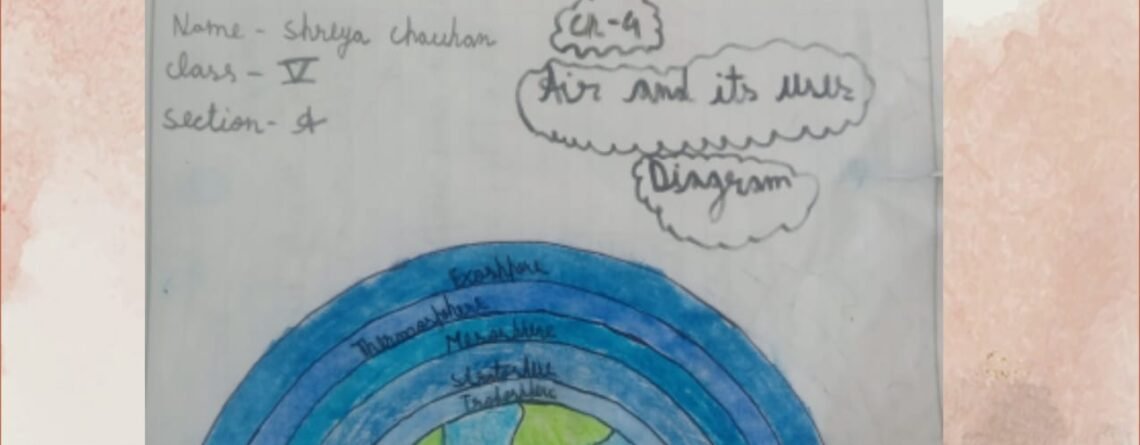 Name - Shreya Chauhan
Class - V
Section - A
Ch-4
Air and its uses
Diagram
Exosphere
Thermosphere
Mesosphere